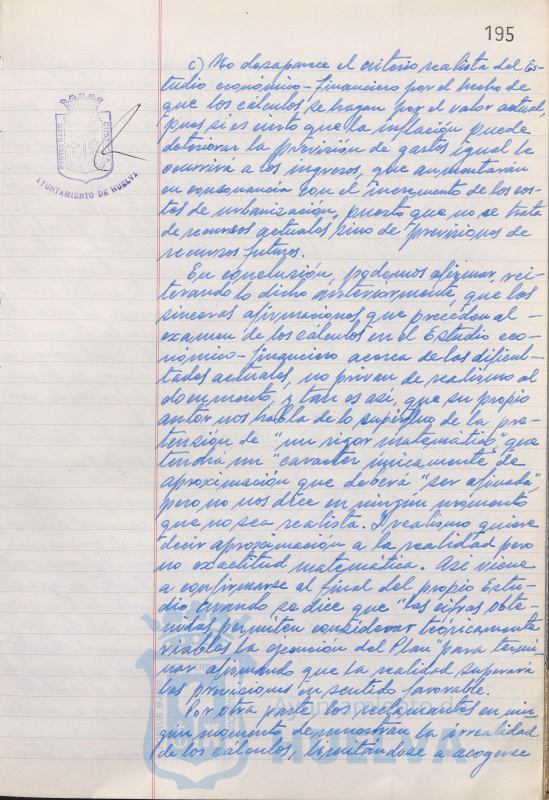 195
c) No desaparece el criterio realista del Es-
tudio económico-financiero por el hecho de
que los cálculos se hagan por el valor actual,
pues si es cierto que la inflación puede
deteriorar la previsión de gastos igual le
ocurrirá a los ingresos, que aumentarán
en consonancia con el incremento de los cos-
tos de urbanización, puesto que no se trata
de recursos actuales sino de previsiones de
recursos futuros.
En conclusión, podemos afirmar, rei-
terando lo dicho anteriormente, que las
sinceras afirmaciones que preceden al
examen de los cálculos en el Estudio eco-
nómico-financiero acerca de las dificul-
tades actuales, no privan de realismo al
documento, y tan es así, que su propio
autor nos habla de lo supérfluo de la pre-
tensión de "un rigor matemático" que
tendrá un "carácter únicamente de
aproximación que deberá "ser afinada",
pero no nos dice en ningún momento
que no sea realista. Y realismo quiere
decir aproximación a la realidad pero
no exactitud matemática. Así viene
a confirmarse al final del propio Estu-
dio cuando se dice que "las cifras obte-
nidas permiten considerar teóricamente
viables la ejecución del Plan" para termi-
nar afirmando que la realidad superará
las previsiones en sentido favorable.
Por otra parte, los reclamantes en nin-
gún momento demuestran la irrealidad
de los cálculos, limitándose a acogerse
AYUNTAMIENTO DE HUELVA
Ayuntamiento de
HUELVA